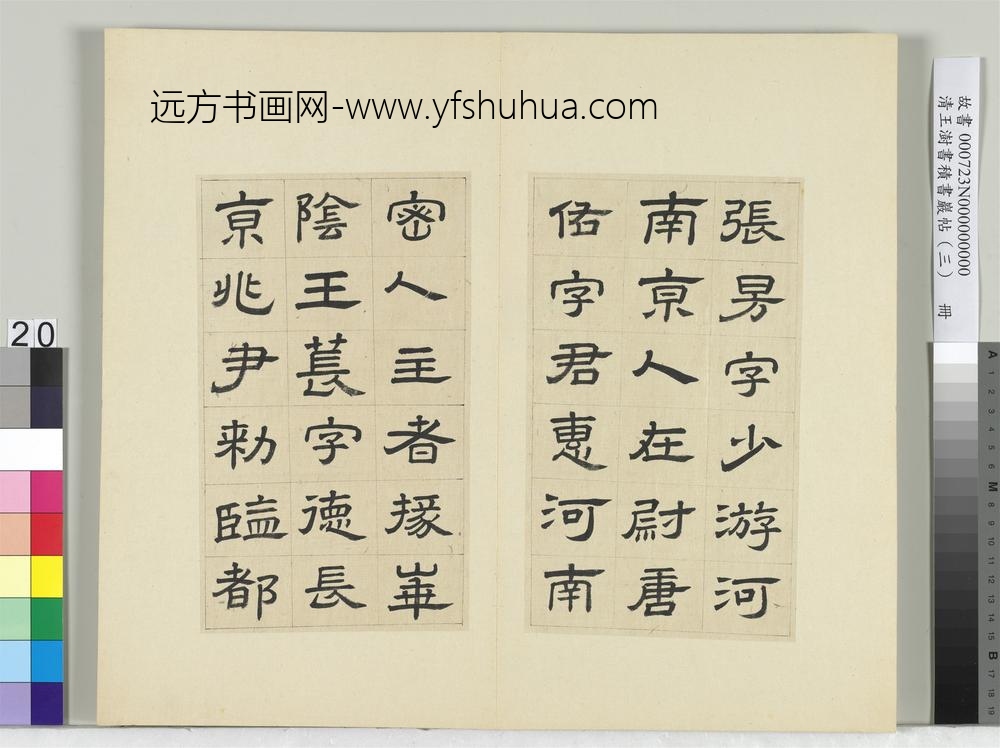 远方书画网-www.yfshuhua.com
張昉字少游河
南亰人在尉唐
佑字君惠河南
密人主者掾崋
陰王萇字德長
亰兆尹勑監都
故書 000723N000000000
清王澍書積書巖帖(三) 冊
20
A 1 2 3 4 5 6 M 8 9 10 11 12 13 14 15 B 17 18 19